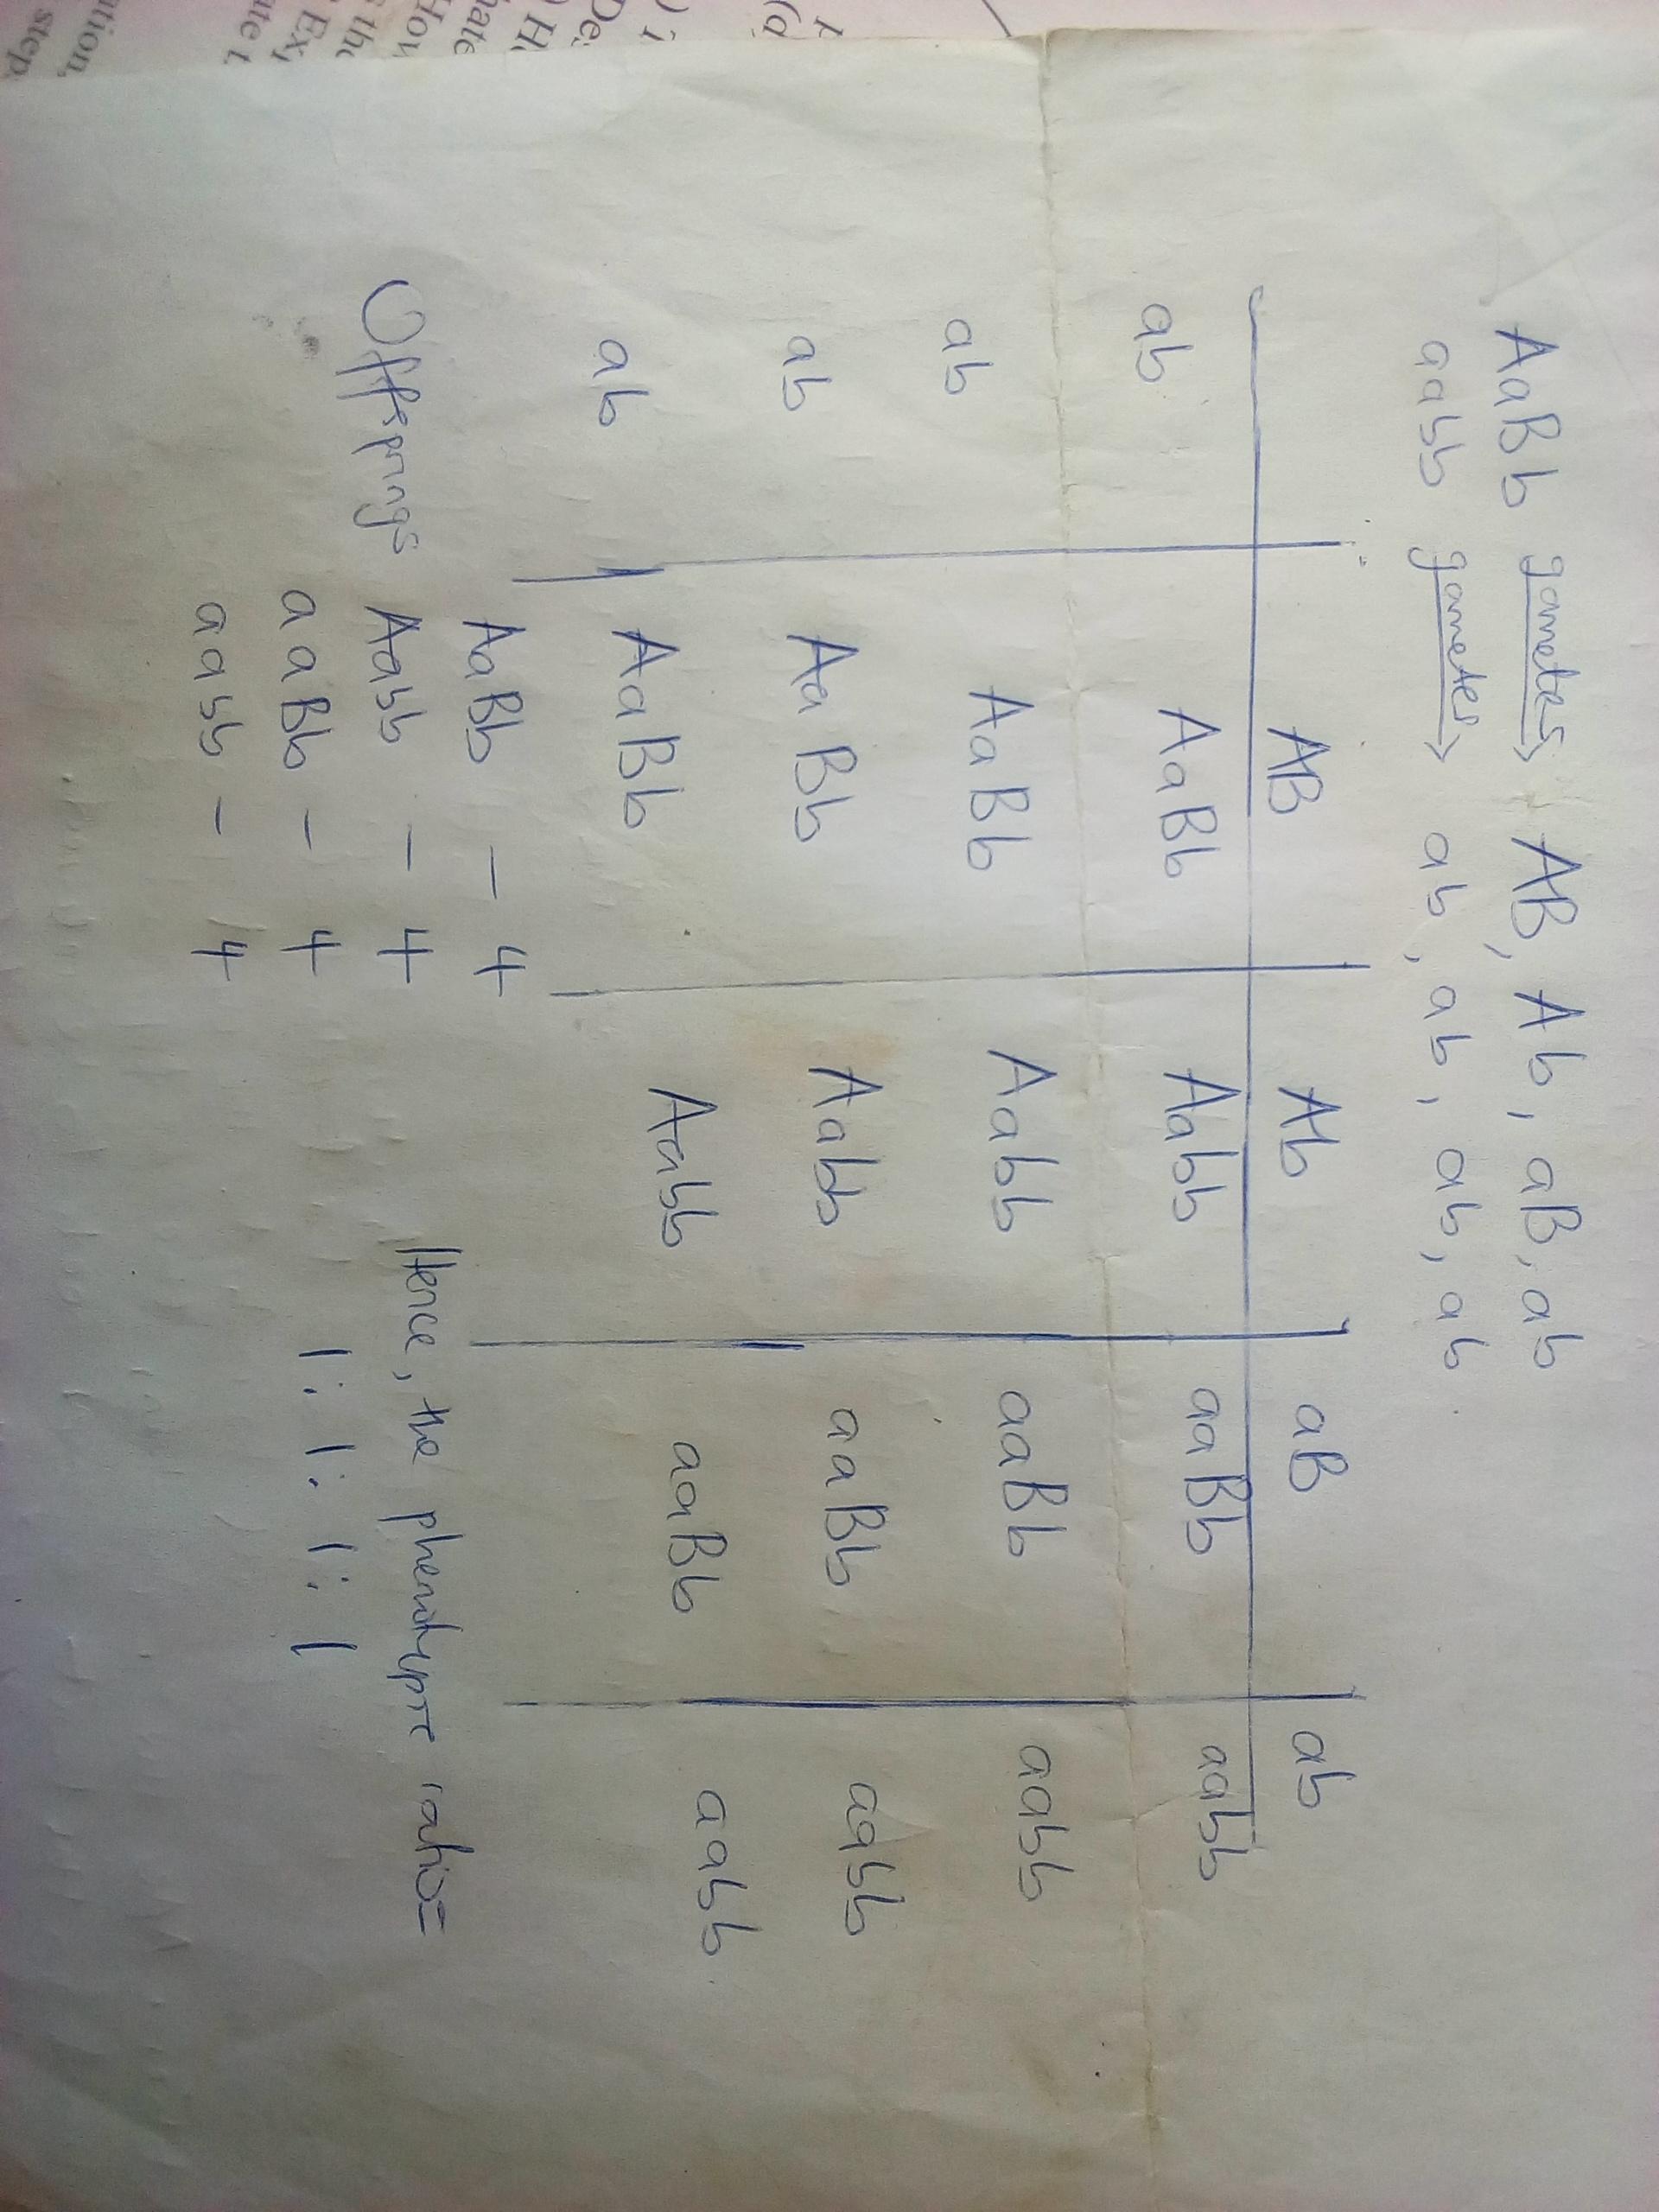 AaBb gametes → AB, Ab, aB, ab
aabb gametes → ab, ab, ab, ab
AB Ab aB ab
ab AaBb Aabb aaBb aabb
ab AaBb Aabb aaBb aabb
ab AaBb Aabb aaBb aabb
ab AaBb Aabb aaBb aabb
AaBb - 4
Offsprings Aabb - 4
aaBb - 4
aabb - 4
Hence, the phenotypic ratio=
1: 1: 1: 1